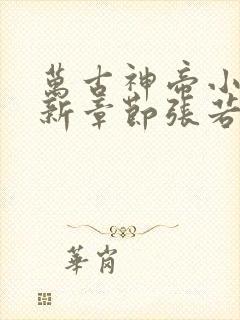 萬古神帝小
新章節張若
華崗